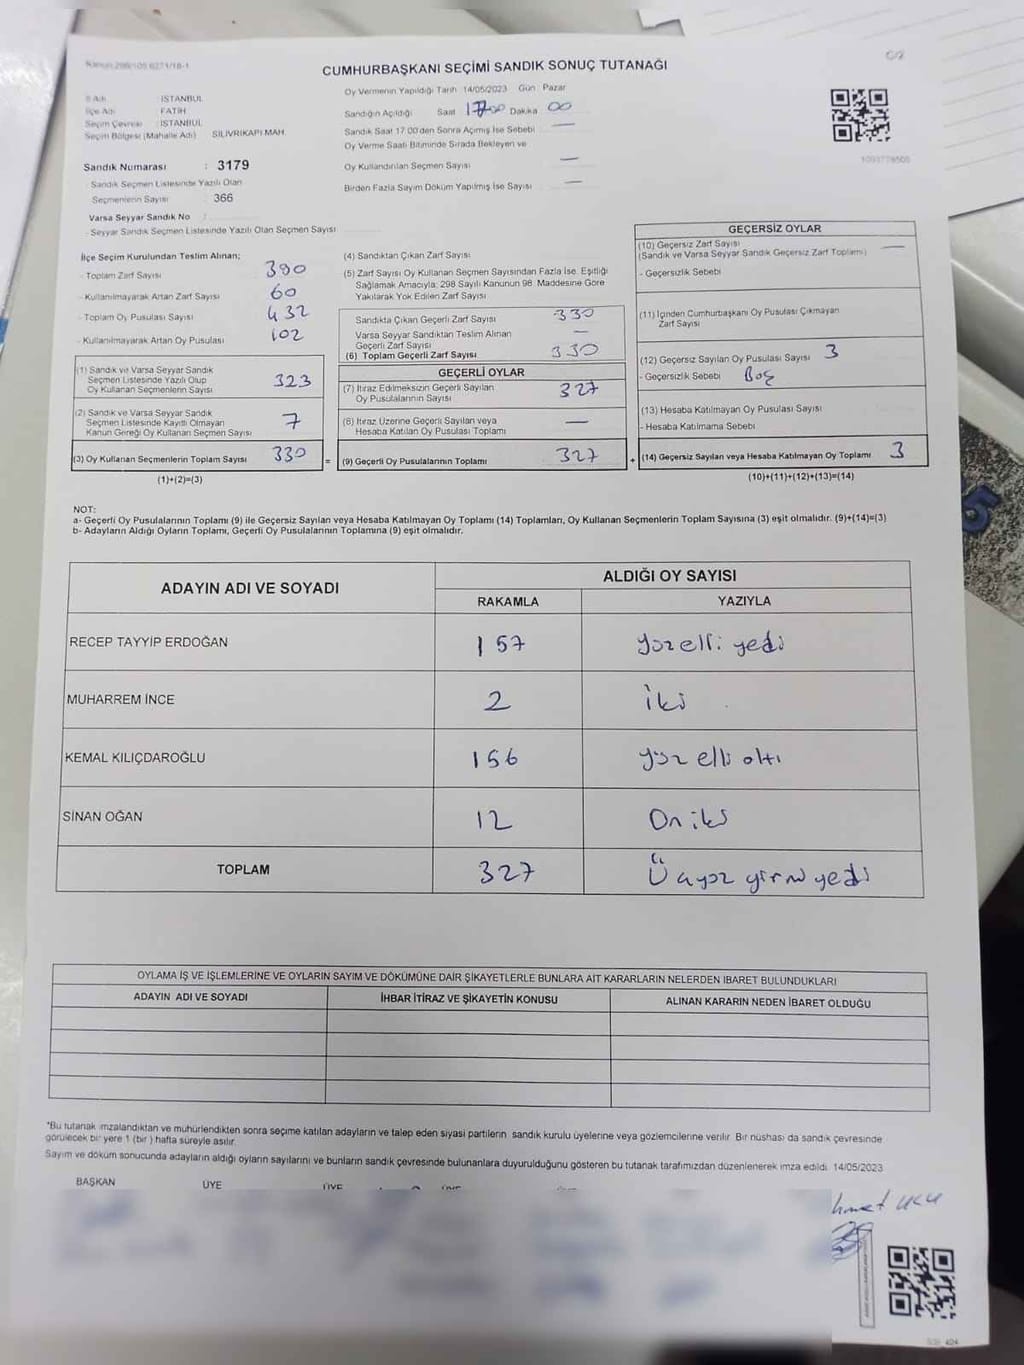 Kanun:298/105 6271/18-1
C/2
CUMHURBAŞKANI SEÇİMİ SANDIK SONUÇ TUTANAĞI
İl Adı : İSTANBUL
İlçe Adı : FATİH
Seçim Çevresi : İSTANBUL
Seçim Bölgesi (Mahalle Adı) SİLİVRİKAPI MAH.
Sandık Numarası : 3179
Sandık Seçmen Listesinde Yazılı Olan
Seçmenlerin Sayısı 366
Varsa Seyyar Sandık No :
- Seyyar Sandık Seçmen Listesinde Yazılı Olan Seçmen Sayısı
Oy Vermenin Yapıldığı Tarih 14/05/2023 Gün Pazar
Sandığın Açıldığı Saat 1700 Dakika 00
Sandık Saat 17.00'den Sonra Açımış İse Sebebi —
Oy Verme Saati Bitiminde Sırada Bekleyen ve
Oy Kullandırılan Seçmen Sayısı —
Birden Fazla Sayım Döküm Yapılmış İse Sayısı —
İlçe Seçim Kurulundan Teslim Alınan;
- Toplam Zarf Sayısı 390
- Kullanılmayarak Artan Zarf Sayısı 60
- Toplam Oy Pusulası Sayısı 432
- Kullanılmayarak Artan Oy Pusulası 102
(1) Sandık ve Varsa Seyyar Sandık
Seçmen Listesinde Yazılı Olup
Oy Kullanan Seçmenlerin Sayısı 323
(2) Sandık ve Varsa Seyyar Sandık
Seçmen Listesinde Kayıtlı Olmayan
Kanun Gereği Oy Kullanan Seçmen Sayısı 7
(3) Oy Kullanan Seçmenlerin Toplam Sayısı 330 =
(1)+(2)=(3)
(4) Sandıktan Çıkan Zarf Sayısı
(5) Zarf Sayısı Oy Kullanan Seçmen Sayısından Fazla İse, Eşitliği
Sağlamak Amacıyla; 298 Sayılı Kanunun 98. Maddesine Göre
Yakılarak Yok Edilen Zarf Sayısı
Sandıkta Çıkan Geçerli Zarf Sayısı 330
Varsa Seyyar Sandıktan Teslim Alınan
Geçerli Zarf Sayısı —
(6) Toplam Geçerli Zarf Sayısı 330
GEÇERLİ OYLAR
(7) İtiraz Edilmeksizin Geçerli Sayılan
Oy Pusulalarının Sayısı 327
(8) İtiraz Üzerine Geçerli Sayılan veya
Hesaba Katılan Oy Pusulası Toplamı —
(9) Geçerli Oy Pusulalarının Toplamı 327 +
GEÇERSİZ OYLAR
(10) Geçersiz Zarf Sayısı —
(Sandık ve Varsa Seyyar Sandık Geçersiz Zarf Toplamı)
- Geçersizlik Sebebi
(11) İçinden Cumhurbaşkanı Oy Pusulası Çıkmayan
Zarf Sayısı
(12) Geçersiz Sayılan Oy Pusulası Sayısı 3
- Geçersizlik Sebebi Boş
(13) Hesaba Katılmayan Oy Pusulası Sayısı
- Hesaba Katılmama Sebebi
(14) Geçersiz Sayılan veya Hesaba Katılmayan Oy Toplamı 3
(10)+(11)+(12)+(13)=(14)
NOT:
a- Geçerli Oy Pusulalarının Toplamı (9) ile Geçersiz Sayılan veya Hesaba Katılmayan Oy Toplamı (14) Toplamları, Oy Kullanan Seçmenlerin Toplam Sayısına (3) eşit olmalıdır. (9)+(14)=(3)
b- Adayların Aldığı Oyların Toplamı, Geçerli Oy Pusulalarının Toplamına (9) eşit olmalıdır.
ADAYIN ADI VE SOYADI ALDIĞI OY SAYISI
RAKAMLA YAZIYLA
RECEP TAYYİP ERDOĞAN 157 yüz elli yedi
MUHARREM İNCE 2 iki
KEMAL KILIÇDAROĞLU 156 yüz elli altı
SİNAN OĞAN 12 On iki
TOPLAM 327 Üçyüz yirmi yedi
OYLAMA İŞ VE İŞLEMLERİNE VE OYLARIN SAYIM VE DÖKÜMÜNE DAİR ŞİKAYETLERLE BUNLARA AİT KARARLARIN NELERDEN İBARET BULUNDUKLARI
ADAYIN ADI VE SOYADI İHBAR İTİRAZ VE ŞİKAYETİN KONUSU ALINAN KARARIN NEDEN İBARET OLDUĞU
*Bu tutanak imzalandıktan ve mühürlendikten sonra seçime katılan adayların ve talep eden siyasi partilerin sandık kurulu üyelerine veya gözlemcilerine verilir. Bir nüshası da sandık çevresinde
görülecek bir yere 1 (bir) hafta süreyle asılır.
Sayım ve döküm sonucunda adayların aldığı oyların sayılarını ve bunların sandık çevresinde bulunanlara duyurulduğunu gösteren bu tutanak tarafımızdan düzenlenerek imza edildi. 14/05/2023
BAŞKAN ÜYE ÜYE